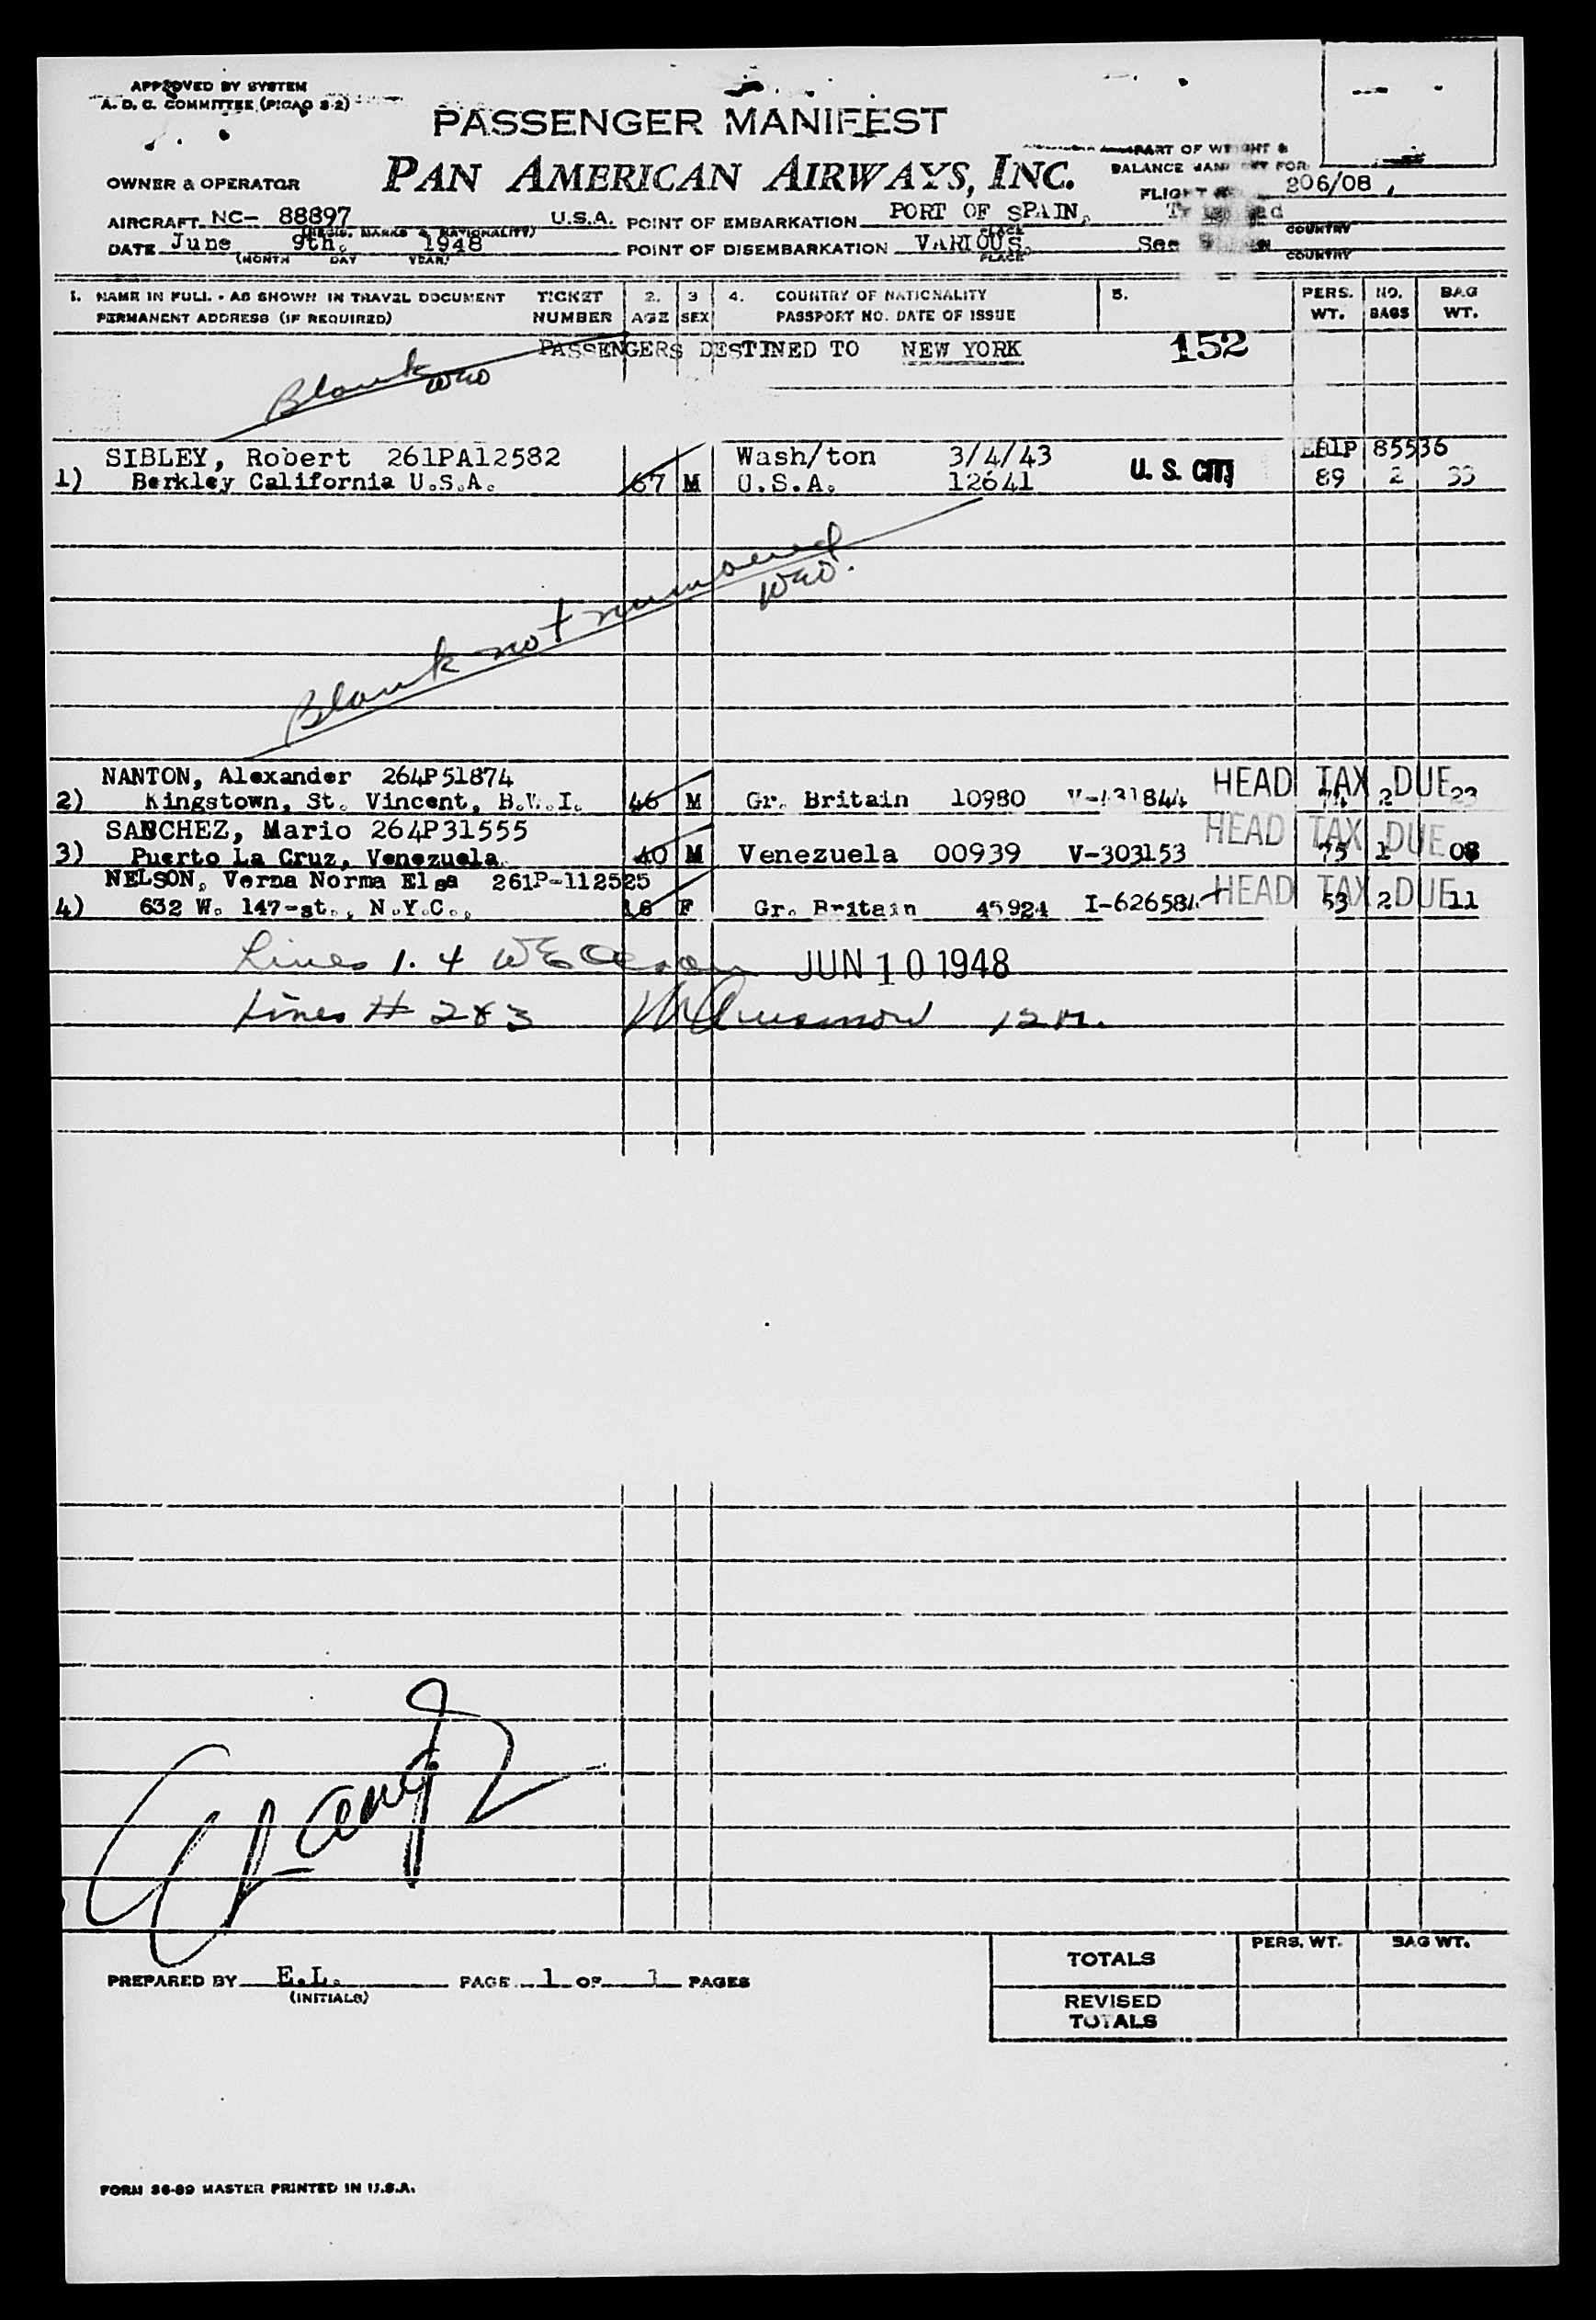 APPROVED BY SYSTEM
A. D. C. COMMITTEE (PICAO S-2)
PASSENGER MANIFEST
PAN AMERICAN AIRWAYS, INC.
PART OF WEIGHT &
BALANCE MANIFEST FOR
OWNER & OPERATOR
FLIGHT 206/08
AIRCRAFT NC- 88897 U.S.A. POINT OF EMBARKATION PORT OF SPAIN, Trinidad
(REGIS. MARKS & NATIONALITY) PLACE COUNTRY
DATE June 9th. 1948 POINT OF DISEMBARKATION VARIOUS, See
(MONTH DAY YEAR) PLACE COUNTRY
1. NAME IN FULL - AS SHOWN IN TRAVEL DOCUMENT TICKET 2. 3 4. COUNTRY OF NATIONALITY 5. PERS. NO. BAG
PERMANENT ADDRESS (IF REQUIRED) NUMBER AGE SEX PASSPORT NO. DATE OF ISSUE WT. BAGS WT.
PASSENGERS DESTINED TO NEW YORK 152
Blank
SIBLEY, Robert 261PA12582 Wash/ton 3/4/43 85536
1) Berkley California U.S.A. 67 M U.S.A. 12641 U. S. CIT. 89 2 33
Blank not numbered
NANTON, Alexander 264P51874 HEAD TAX DUE
2) Kingstown, St. Vincent, B.W.I. 46 M Gr. Britain 10980 74 2 23
SANCHEZ, Mario 264P31555 HEAD TAX DUE
3) Puerto La Cruz, Venezuela. 40 M Venezuela 00939 V-303153 75 1 08
NELSON, Verna Norma Elsa 261P-112525 HEAD TAX DUE
4) 632 W. 147-st., N.Y.C., F Gr. Britain 45924 53 2 11
Lines 1. 4 JUN 10 1948
Lines # 2 & 3
TOTALS PERS. WT. BAG WT.
PREPARED BY E.L. PAGE 1 OF 1 PAGES
(INITIALS)
REVISED
TOTALS
FORM 36-89 MASTER PRINTED IN U.S.A.